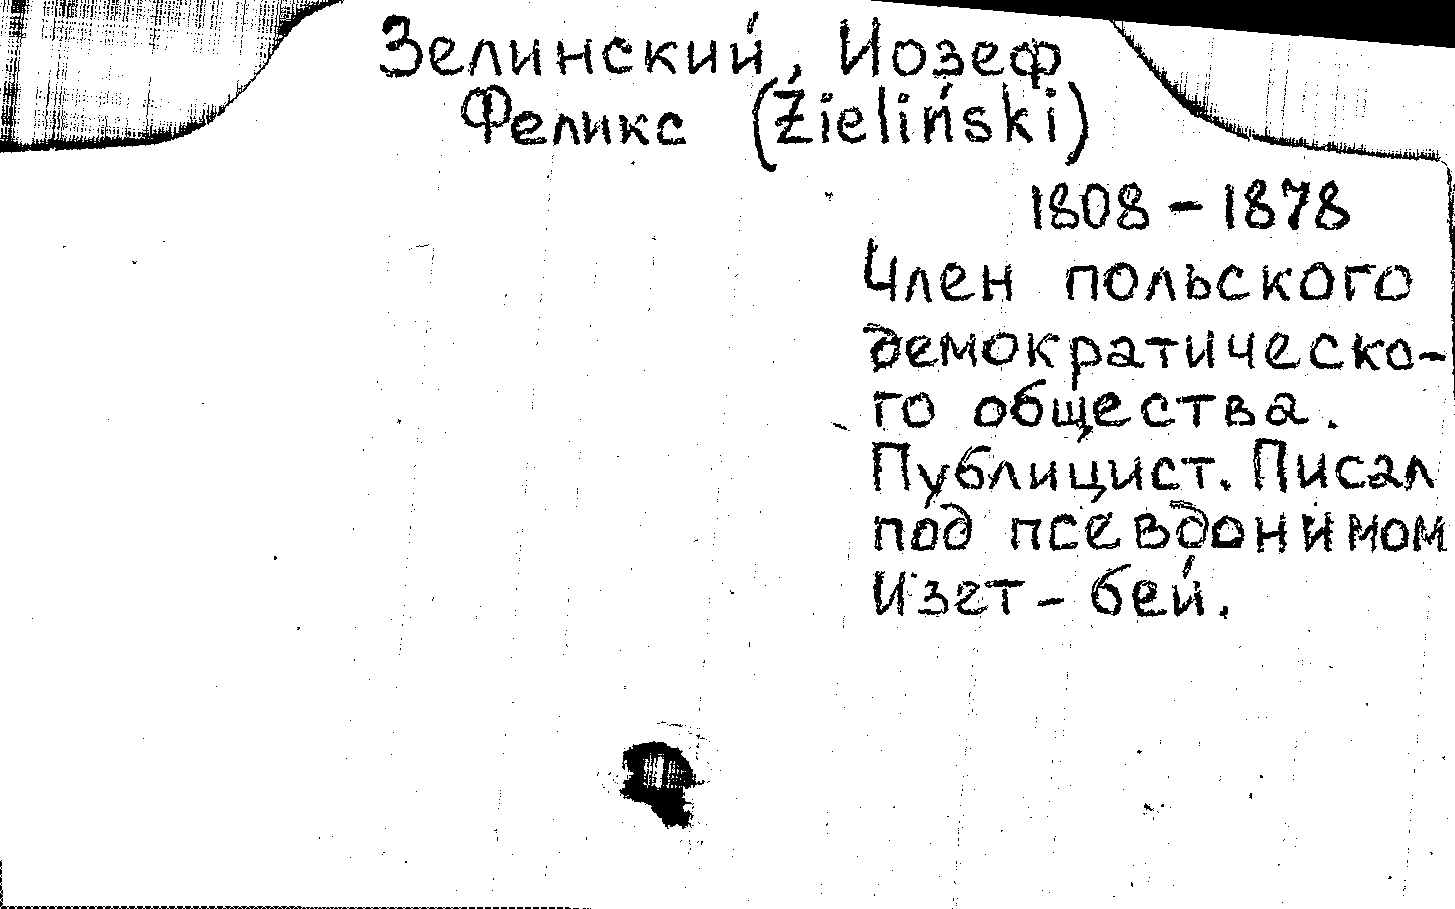 Зелинский, Иозеф
Феликс (Źieliński)
1808 - 1878
Член польского
демократическо-
го общества.
Публицист. Писал
под псевдонимом
Изет - бей.